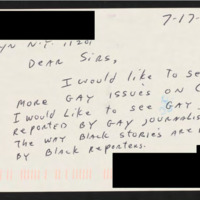 7-17-
YN N.Y. 1120
DEAR SIRS,
I WOULD LIKE TO SE
MORE GAY ISSUES ON C
I WOULD LIKE TO SEE GAY
REPORTED BY GAY JOURNALIS
THE WAY BLACK STORIES ARE
BY BLACK REPORTERS.